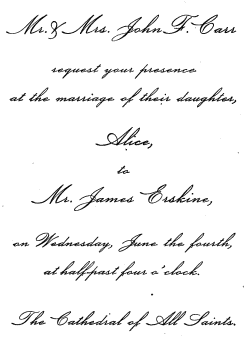 Mr. & Mrs. John F. Carr
request your presence
at the marriage of their daughter,
Alice,
to
Mr. James Erskine,
on Wednesday, June the fourth,
at half-past four o'clock.
The Cathedral of All Saints.